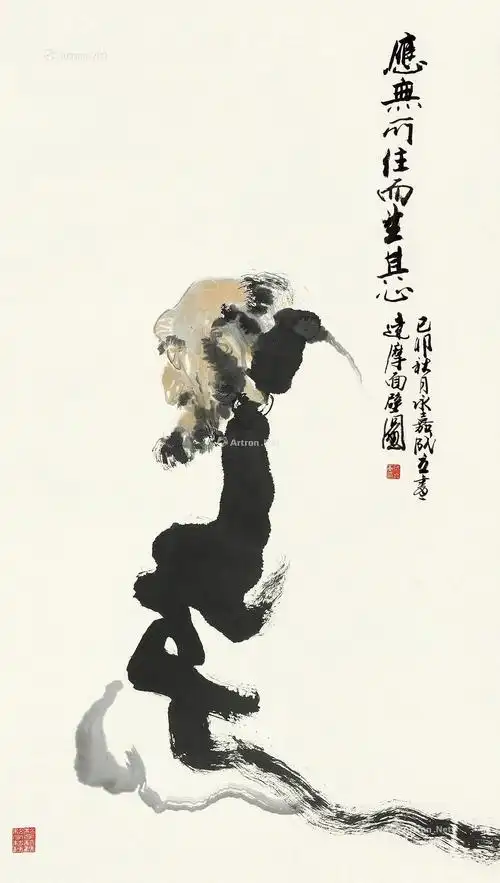 應無所住而生其心
達摩面壁圖
己卯秋月永嘉
畫
Artron.Net
Artron.Net
Artron.Net